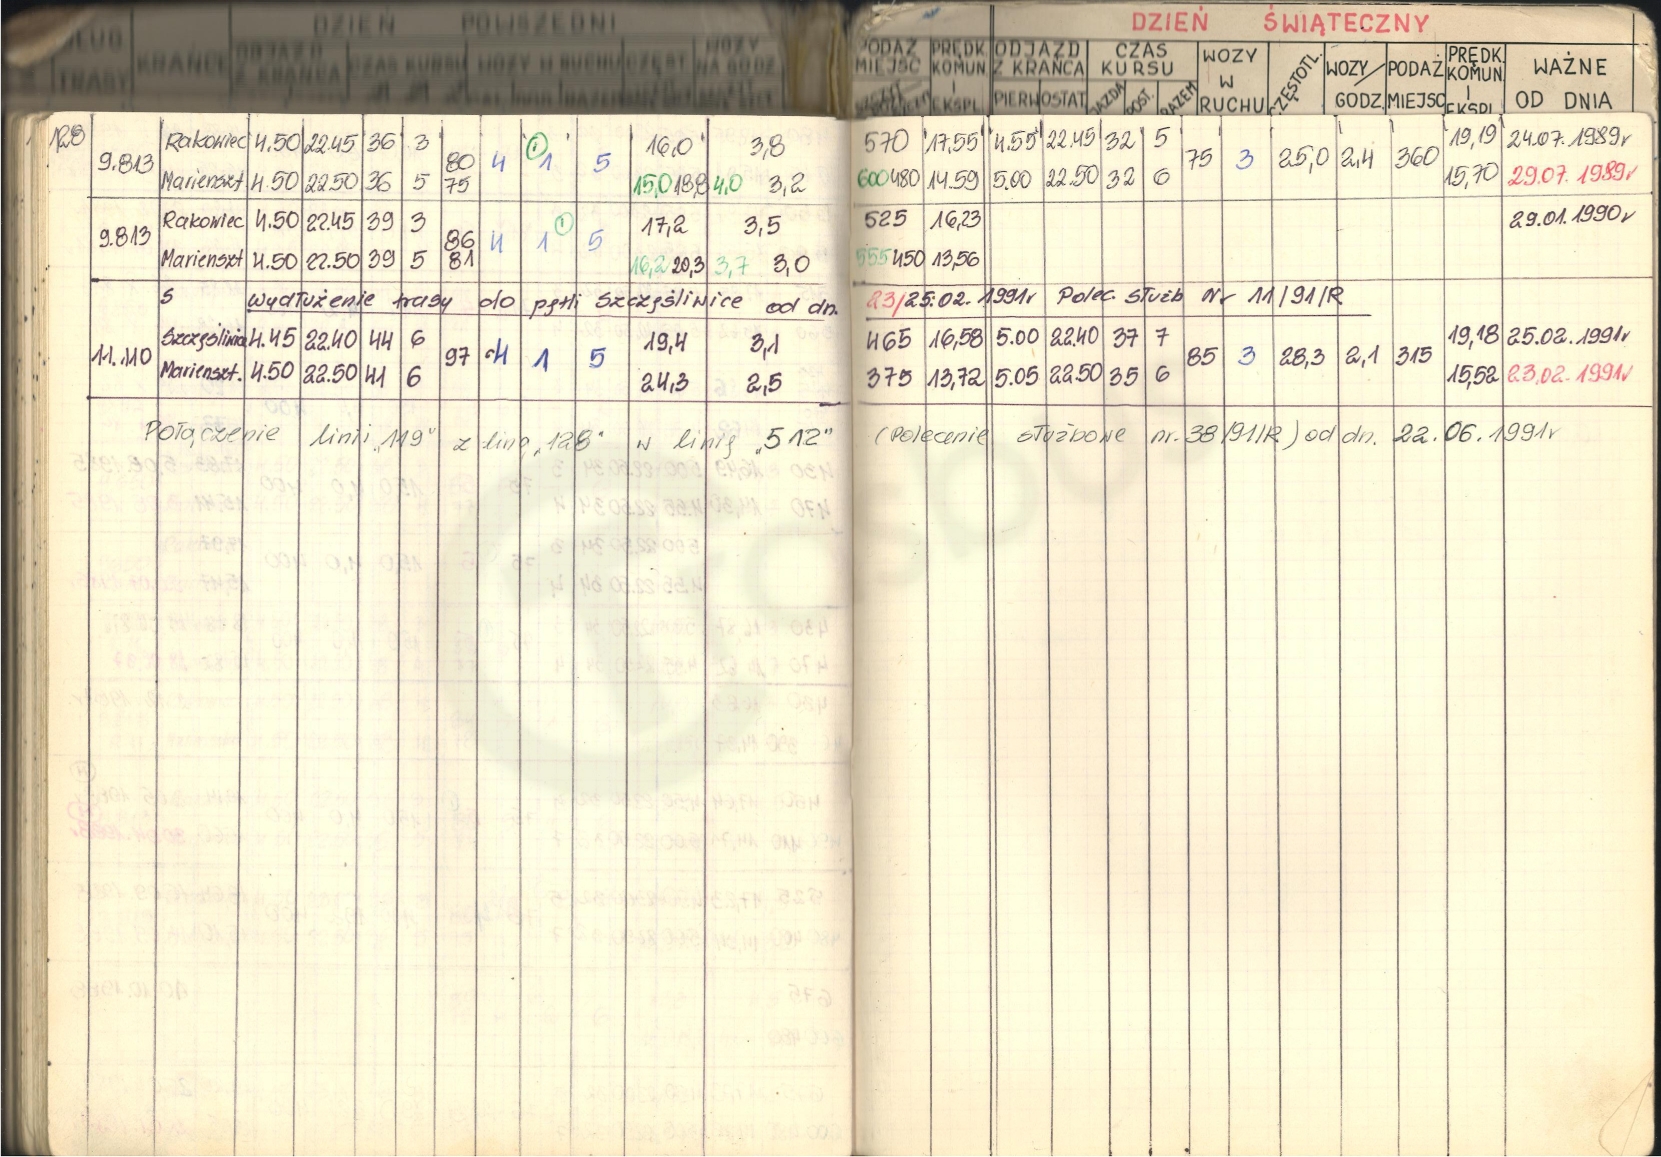 DZIEŃ POWSZEDNI
DZIEŃ ŚWIĄTECZNY
DŁUG. TRASY KRAŃCE ODJAZD Z KRAŃCA CZAS KURSU WOZY W RUCHU CZĘST. WOZY NA GODZ.
PODAŻ MIEJSC PRĘDK. KOMUN. I EKSPL. ODJAZD Z KRAŃCA CZAS KURSU WOZY W RUCHU CZĘSTOTL. WOZY/GODZ. PODAŻ MIEJSC PRĘDK. KOMUN. I EKSPL. WAŻNE OD DNIA
PIERW OSTAT JAZDA POST. RAZEM
128
9.813
Rakowiec 4.50 22.45 36 3 80 4 1 5 16,0 3,8 570 17,55 4.55 22.45 32 5 75 3 25,0 2,4 360 19,19 24.07.1989r
Mariensxt 4.50 22.50 36 5 75 15,0 4,0 3,2 600 480 14.59 5.00 22.50 32 6 15,70 29.07.1989r
9.813
Rakowiec 4.50 22.45 39 3 86 4 1 5 17,2 3,5 525 16,23 29.01.1990r
Mariensxt 4.50 22.50 39 5 81 16,2 20,3 3,7 3,0 555 450 13,56
S wydłużenie trasy do pętli Szczęśliwice od dn. 23/25.02.1991r Polec. służb Nr 11/91/R
11.110
Szczęśliwice 4.45 22.40 44 6 97 4 1 5 19,4 3,1 465 16,58 5.00 22.40 37 7 85 3 28,3 2,1 315 19,18 25.02.1991r
Marienszt. 4.50 22.50 41 6 24,3 2,5 375 13,72 5.05 22.50 35 6 15,52 23.02.1991r
Połączenie linii „119" z linią „128" w linię „512" (Polecenie służbowe nr. 38/91/R) od dn. 22.06.1991r
Trasbus